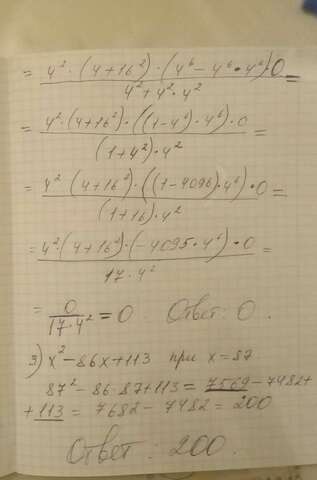 = 4² · (4+16²) · (4⁶ − 4⁶ · 4⁶) · 0 / 4² + 4² · 4² =
= 4² · (4+16²) · ((1−4⁶) · 4⁶) · 0 / (1+4²) · 4² =
= 4² · (4+16²) · ((1−4096) · 4⁶) · 0 / (1+16) · 4² =
= 4² · (4+16²) · (−4095 · 4⁶) · 0 / 17 · 4² =
= 0 / 17 · 4² = 0. Ответ: 0.
3) x² − 86x + 113 при x = 87
87² − 86 · 87 + 113 = 7569 − 7482 +
+ 113 = 7682 − 7482 = 200
Ответ: 200.